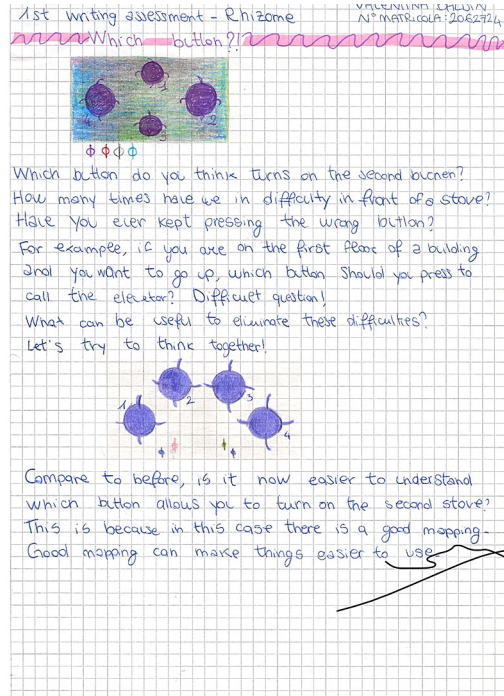 1st writing assessment - Rhizome
N° MATRICOLA: 2062724
Which button?!?
1
2
3
4
Which button do you think turns on the second burner?
How many times have we in difficulty in front of a stove?
Have you ever kept pressing the wrong button?
For example, if you are on the first floor of a building
and you want to go up, which button should you press to
call the elevator? Difficult question!
What can be useful to eliminate these difficulties?
Let's try to think together!
1
2
3
4
Compare to before, is it now easier to understand
which button allows you to turn on the second stove?
This is because in this case there is a good mapping.
Good mapping can make things easier to use.